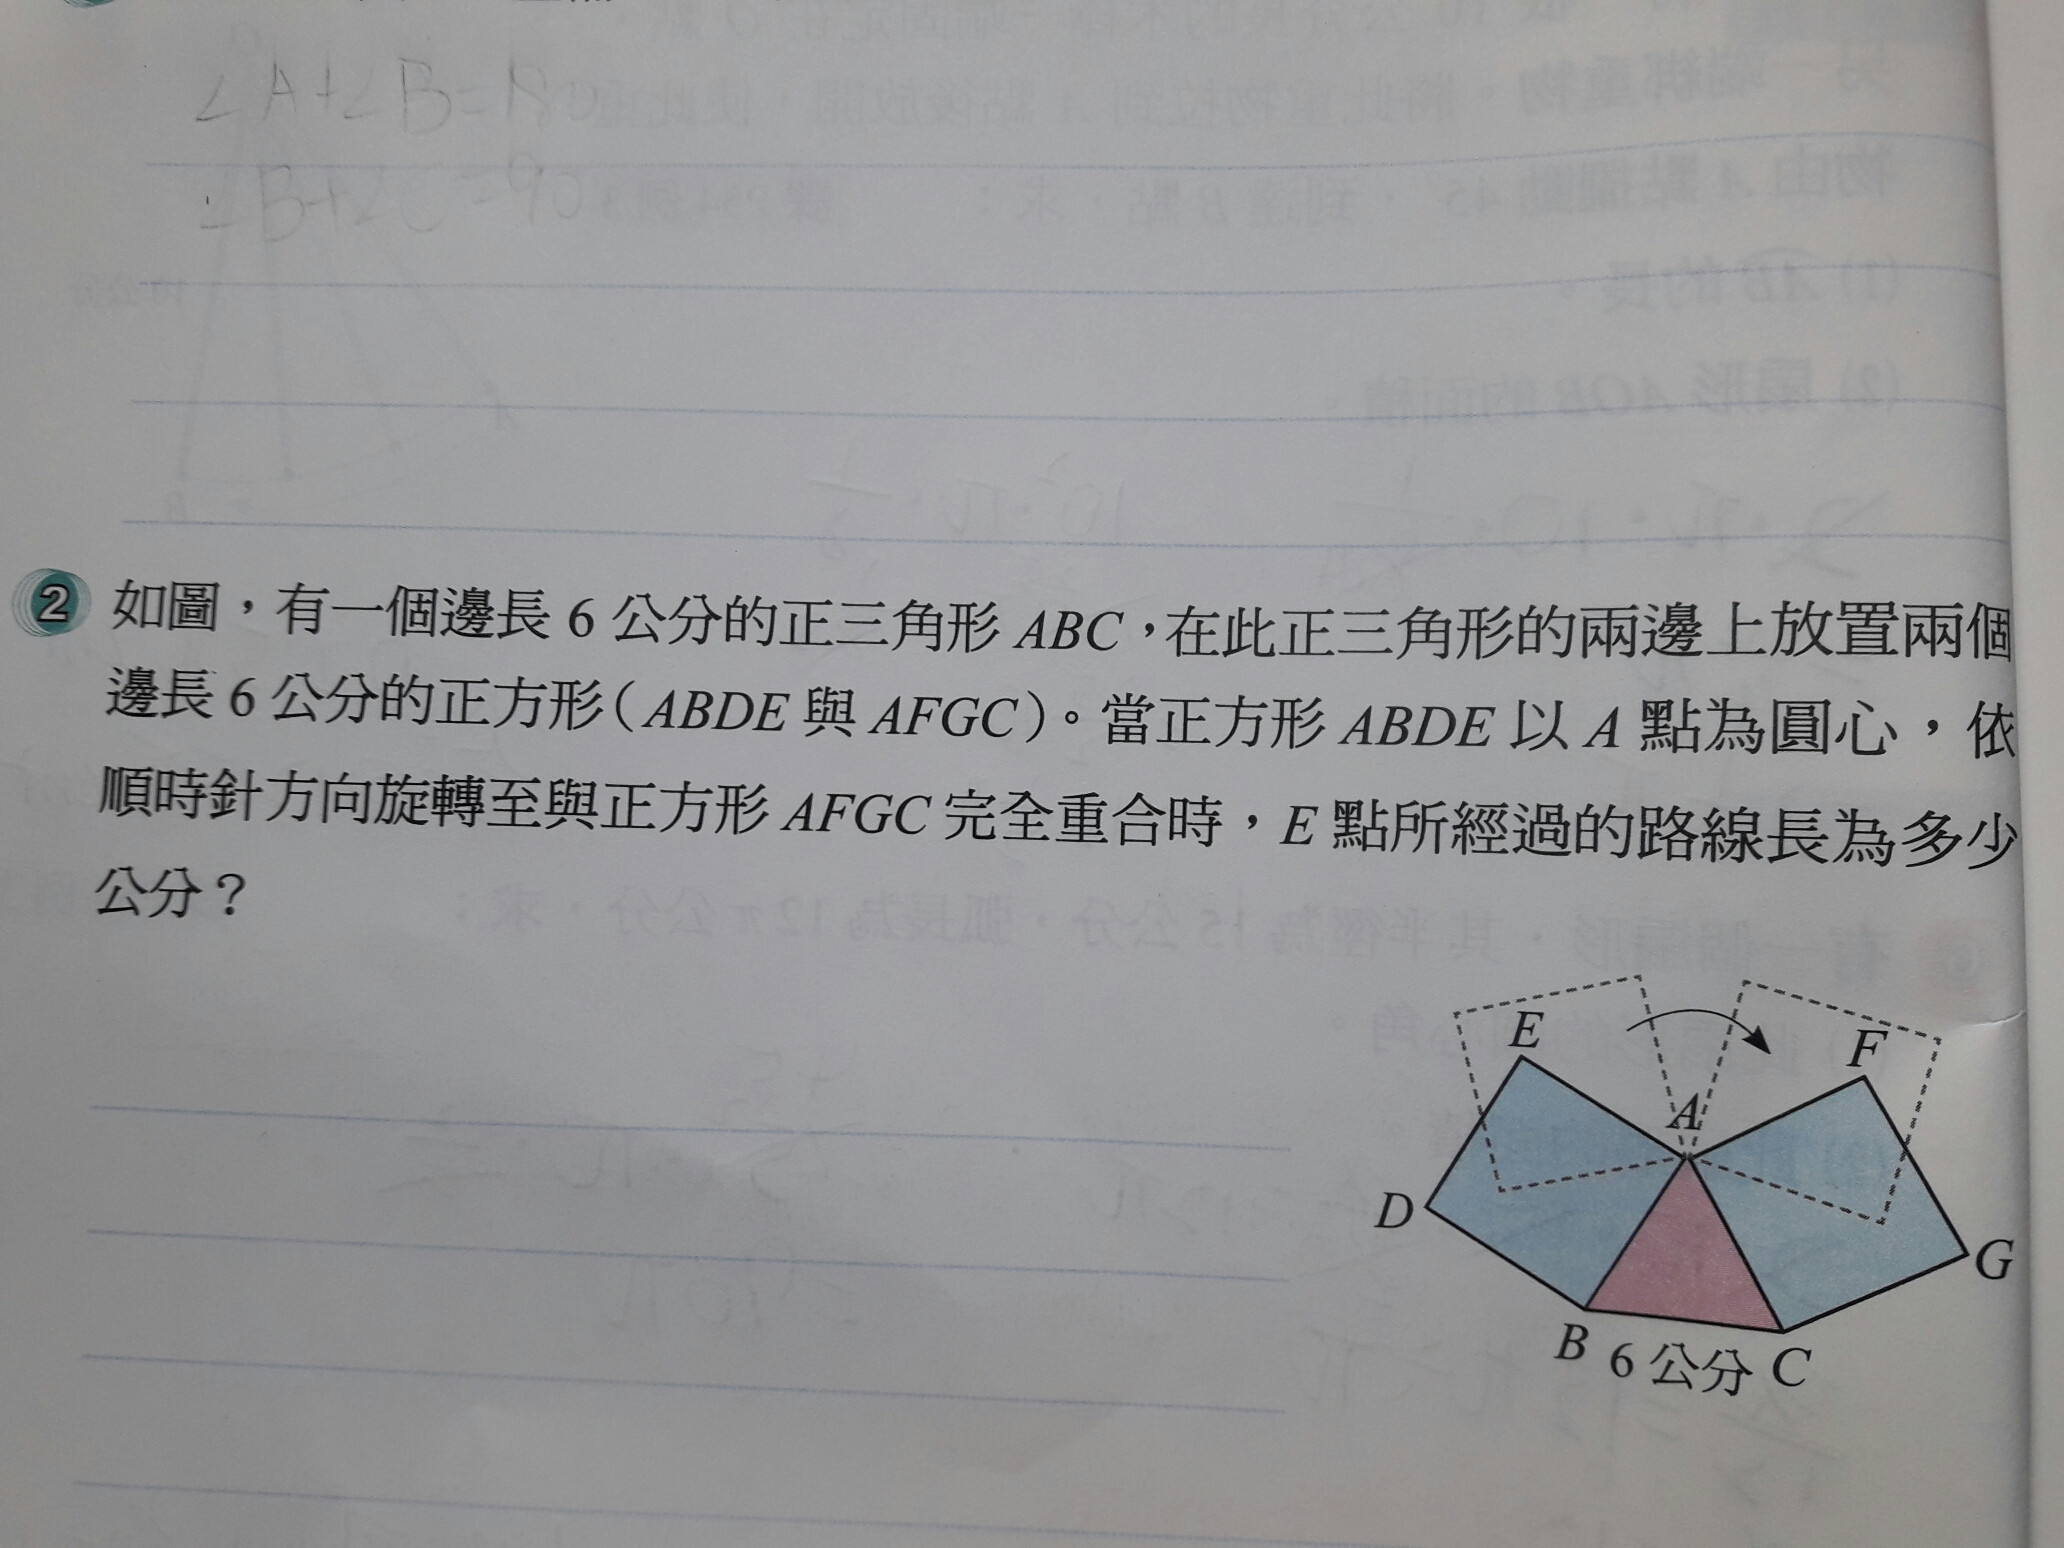 ∠A+∠B=180
∠B+∠C=90
2 如圖，有一個邊長 6 公分的正三角形 ABC，在此正三角形的兩邊上放置兩個
邊長 6 公分的正方形（ABDE 與 AFGC）。當正方形 ABDE 以 A 點為圓心，依
順時針方向旋轉至與正方形 AFGC 完全重合時，E 點所經過的路線長為多少
公分？
E
F
A
D
G
B 6 公分 C